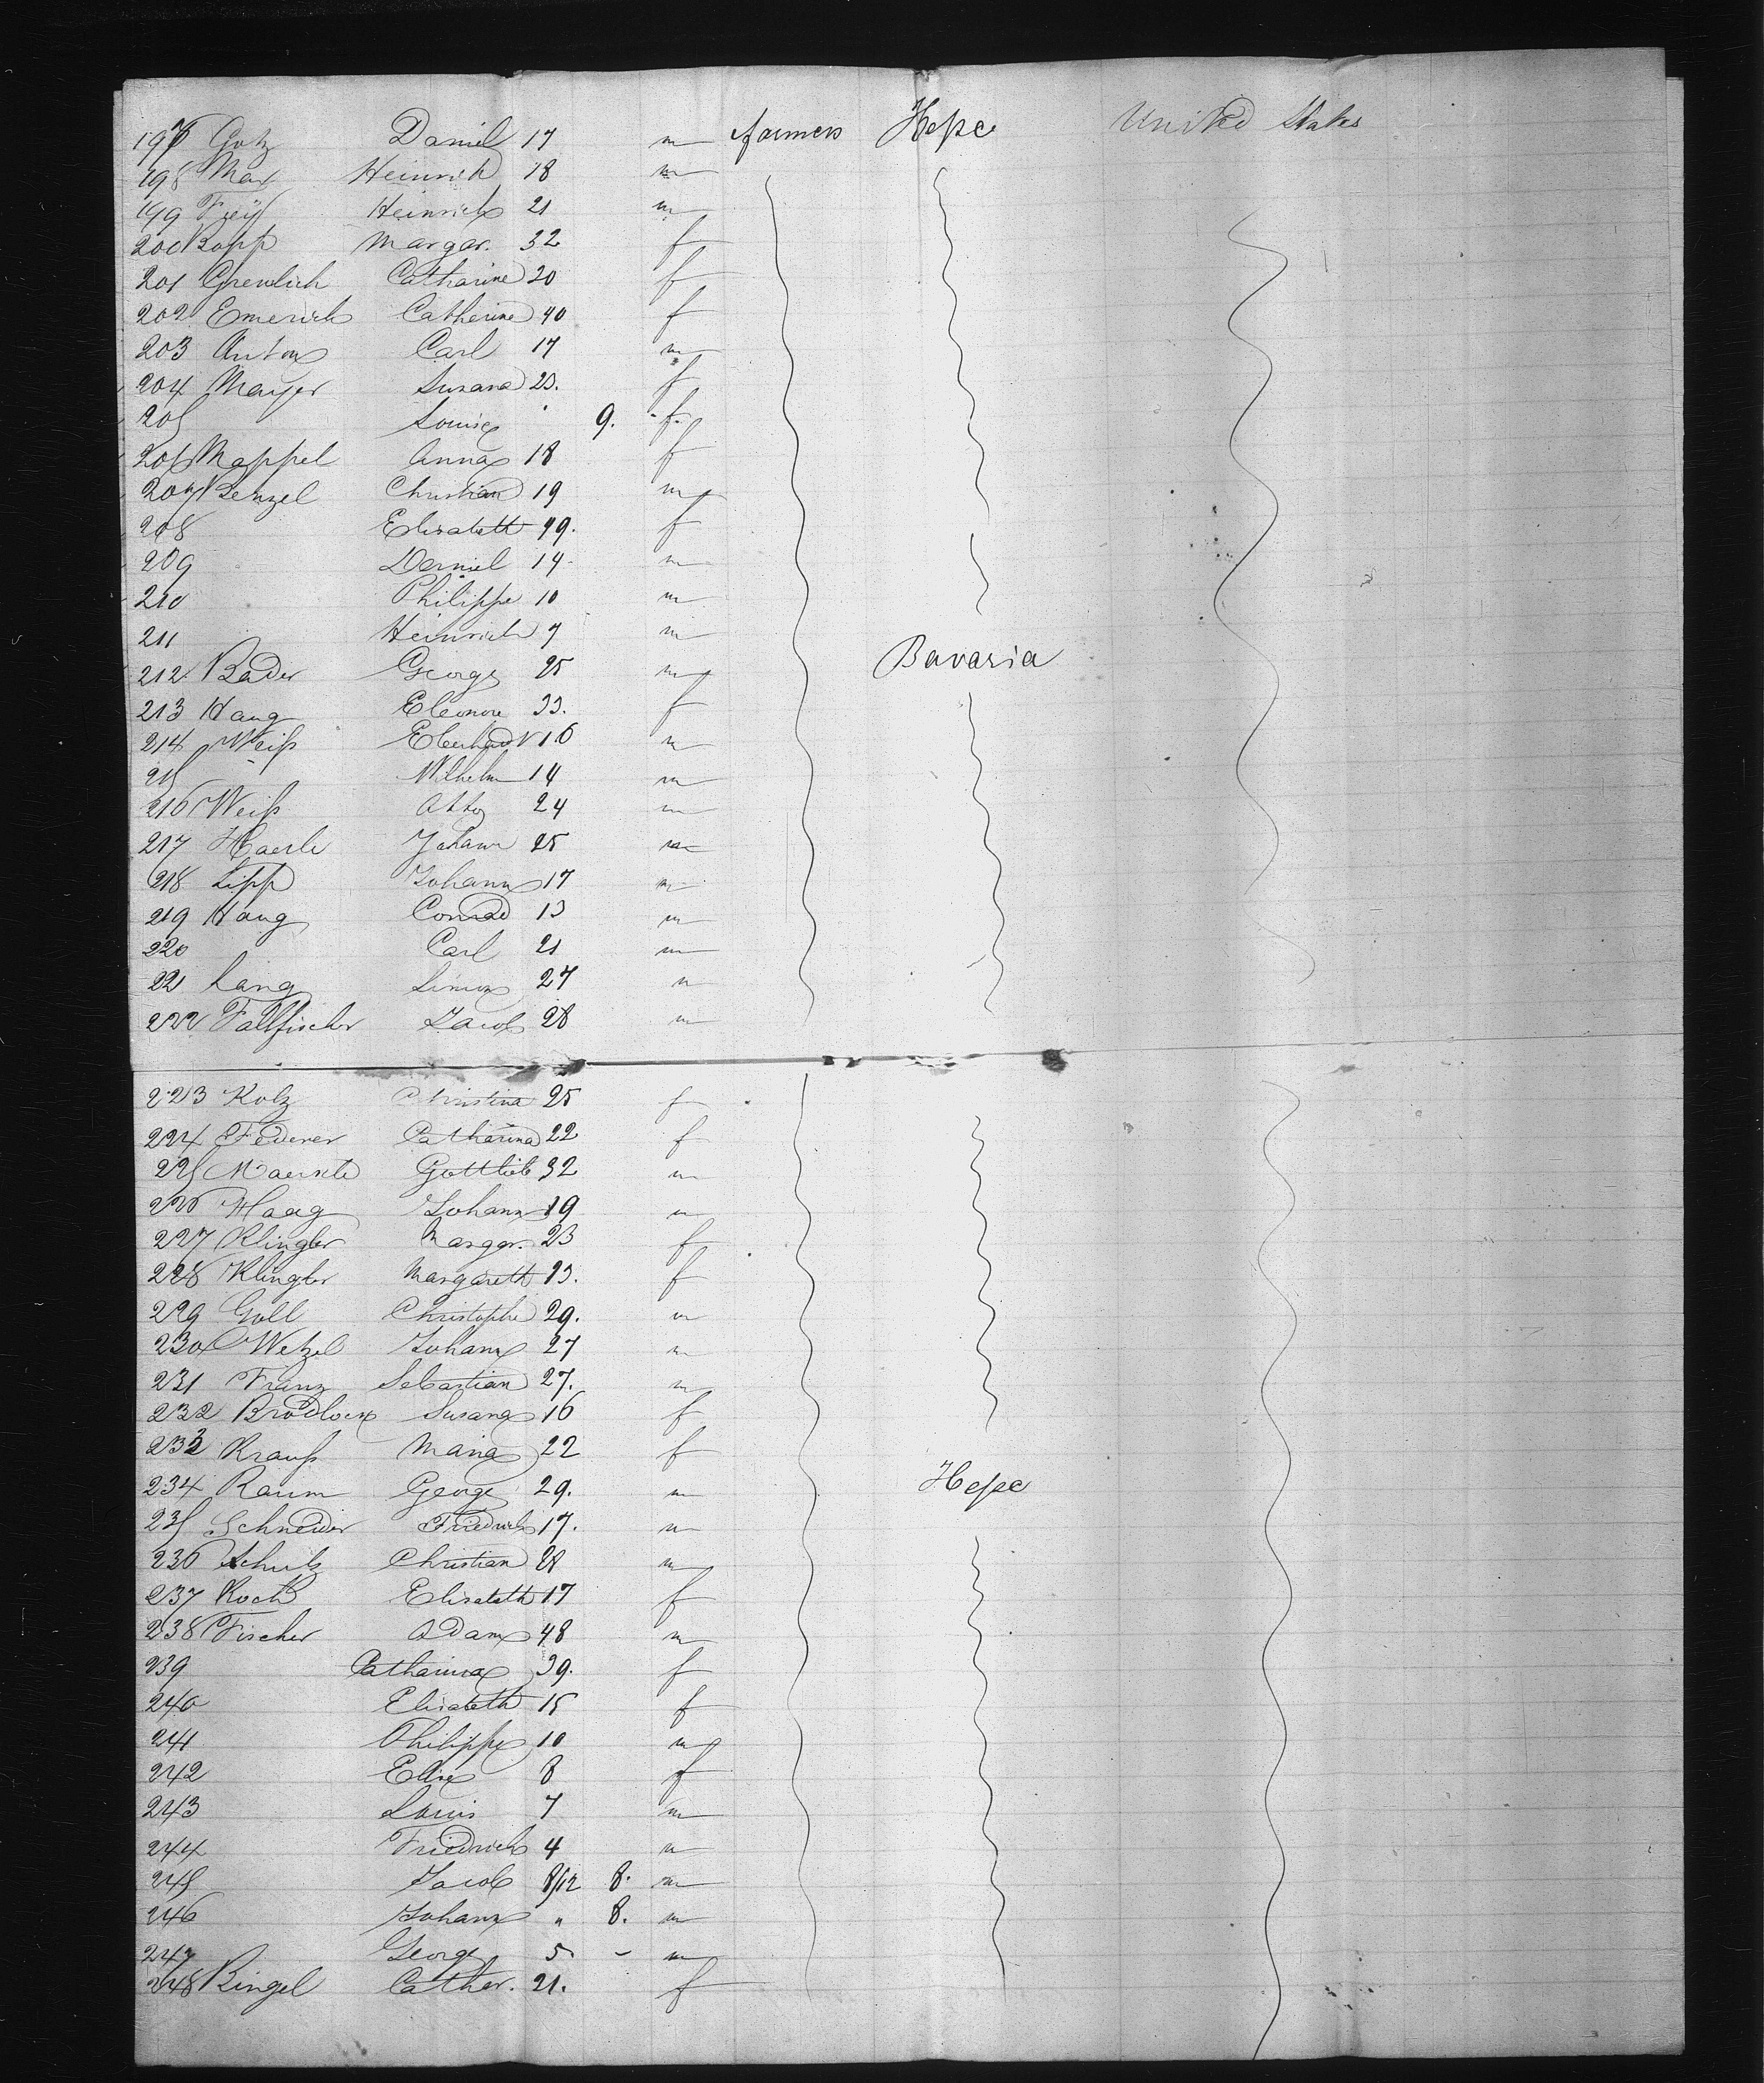 197 Gotz Daniel 17 m farmers Heße United States
198 Max Heinrich 18 m
199 Frey Heinrich 21 m
200 Bopp Margar. 32 f
201 Grenlich Catharine 20 f
202 Emerich Catherine 40 f
203 Anton Carl 17 m
204 Mayer Susana 23. f
205 Louise 9. f
206 Mappel Anna 18 f
207 Benzel Christian 19 m
208 Elisabeth 49. f
209 Daniel 14 m
210 Philippe 10 m
211 Heinrich 7 m
212 Bader George 25 m Bavaria
213 Haug Eleonore 33. f
214 Weiß Eberhard 16 m
215 Wilhelm 14 m
216 Weiß Otto 24 m
217 Haerle Johann 25 m
218 Lipp Johann 17 m
219 Haug Conrad 13 m
220 Carl 21 m
221 Lang Simon 27 m
222 Fallfischer Jacob 28 m
223 Kolz Christina 25 f
224 Federer Catharina 22 f
225 Gottlieb 32 m
226 Haag Johann 19 m
227 Klingler Margar. 23 f
228 Klingler Margareth 23. f
229 Goll Christophe 29. m
230 Wetzel Johann 27 m
231 Franz Sebastian 27. m
232 Susana 16 f
233 Krauß Maria 22 f
234 Raum George 29. m Heße
235 Schneider Friedrich 17. m
236 Schulz Christian 28 m
237 Koch Elisabeth 17 f
238 Fischer Adam 48 m
239 Catharina 39. f
240 Elisabeth 15 f
241 Philippe 10 m
242 Elise 8 f
243 Louis 7 m
244 Friedrich 4 m
245 Jacob 8/12 8. m
246 Johann " 8. m
247 George 5 - m
248 Ringel Cather. 21. f